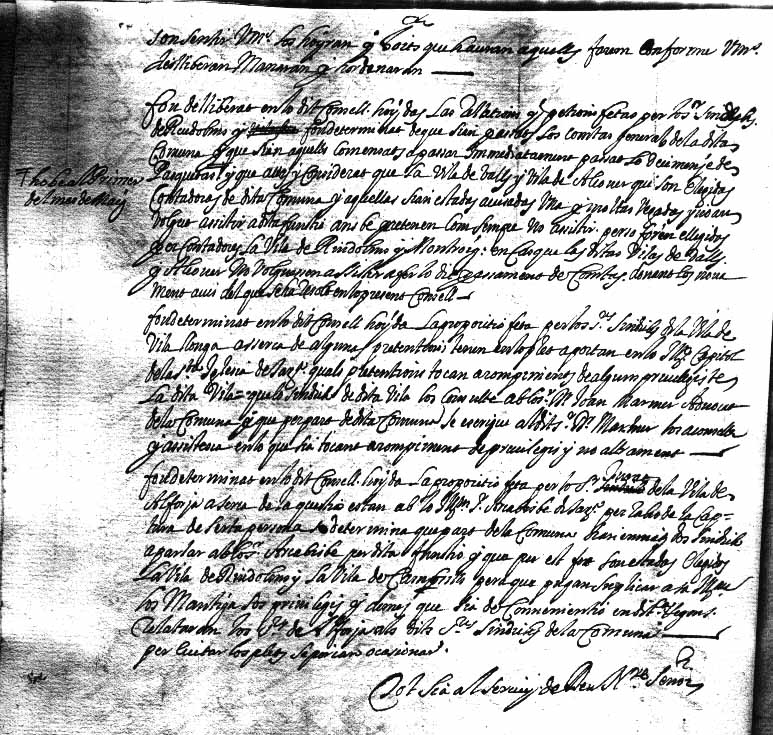 son sentir Vms. los hoyran y vots que hauran aquells faran conforme Vms.
deslliberan Manaran y hordenaran
fon delliberat en lo dit Consell: hoydas las Rallations y petitions fetas per los Sr. Sindichs
de Riudolms y fon determinat de que sian passats los contes generals de la dita
Comuna y que sian aquells comensats a passar immediatament passat lo decimenje de
Pasquetas y que attes y considerat que la Vila de Valls y Vila de Alcover qui son elegits
Contadores de dita Comuna y aquellas sian estades avisades una y moltas vegades y no an
volgut assistir a dita funtió ans be pretenen com sempre no assistir. perso foren ellegides
per Contadores La Vila de Riudolms y Montroig: en cas que las ditas Vilas de Valls
y Alcover no volguessen assistir a fer lo dit passament de Contes. donant los nova
ment avis del que se ha resolt en lo present Consell
Thobe als primer
del mes de Maig
fon determinat en lo dit Consell hoyda la propositió feta per los Srs. Sindichs de la Vila de
Vila llonga asserca de alguns pretentions tenen en lo plet aportan en lo Ille. Capitol
de la Sta. Iglesia de Tarra. quals pretentions tocan a rompiment de algun privilegi de
La dita Vila = que los Sindichs de dita Vila los Consulte ab lo Sr. Mr. Joan Marmer Advocat
de la Comuna y que per part de dita Comuna se escrigue al dit Sr. Mr. Marmer los aconsella
y assistesca en lo que sia tocant a rompiment de privilegi y no altrament
fon determinat en lo dit Consell. hoyda la propositió feta per lo Sr. Jurat de la Vila de
Alforja aserca de la questió estan ab lo Illm. Sr. Archebisbe de Tarra. per rahó de la Cap-
tura de serta persona se determina que part de la Comuna hi an enviar dos Sindichs
a parlar ab lo Sr. Archebisbe per dita funtió y que per est fet son estades elegides
La Vila de Riudolms y la Vila de Cambrils pera que pugan suplicar a sa Illma.
los Mantinga sos privilegis y demes que sia de Convenientia en dit. segons
Relataran los Srs. de Alforja als dits Srs. Sindichs de la Comuna
per evitar los plets se porian ocasionar.
Tot sia al servey de Deu Nre. Senor